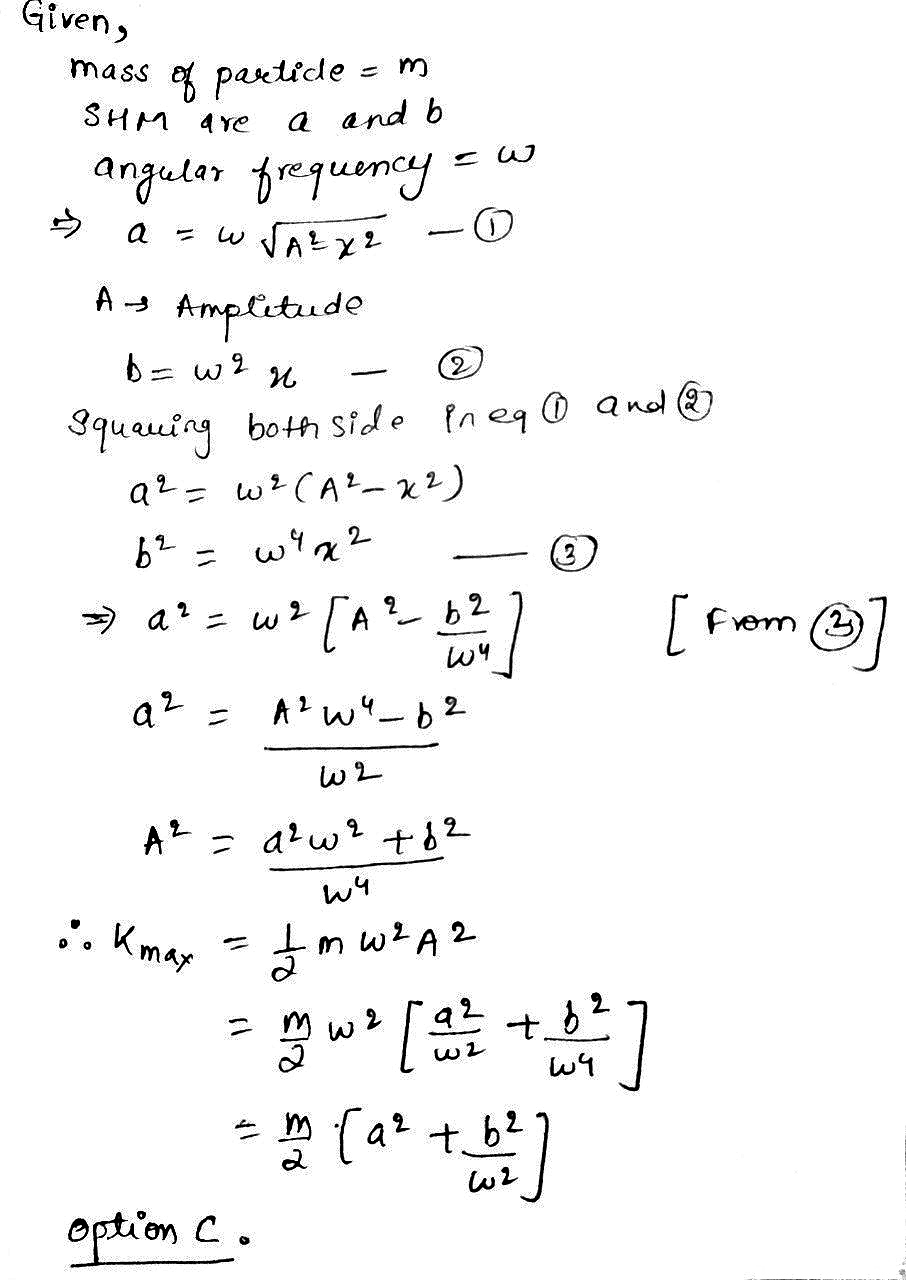 Given,
mass of particle = m
SHM are a and b
angular frequency = ω
⇒ a = ω √A² x² — ①
A → Amplitude
b = ω² x — ②
Squaring both side in eq ① and ②
a² = ω² (A² − x²)
b² = ω⁴ x² — ③
⇒ a² = ω² [A² − b²/ω⁴] [From ③]
a² = A² ω⁴ − b² / ω²
A² = a² ω² + b² / ω⁴
∴ Kmax = 1/2 m ω² A²
= m/2 ω² [a²/ω² + b²/ω⁴]
= m/2 [a² + b²/ω²]
option C.